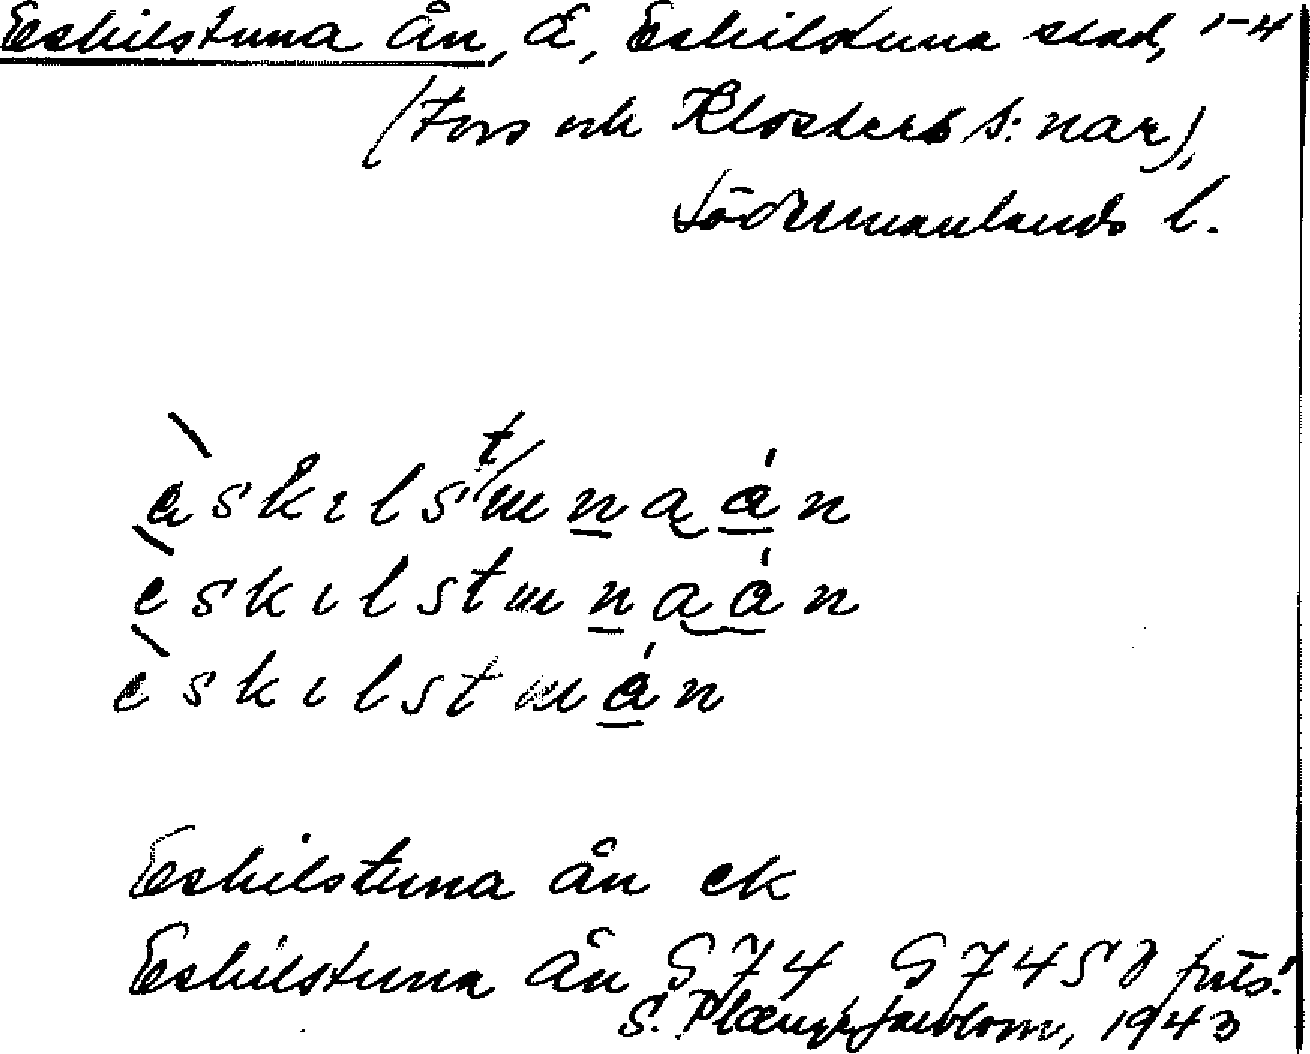 Eskilstuna ån, Å, Eskilstuna stad, 1-4
(Fors och Klosters s:nar),
Södermanlands l.
èskilstunaán
èskilstunaán
èskilstuán
Eskilstuna ån ek
Eskilstuna ån G74 G74SO
S. 1943